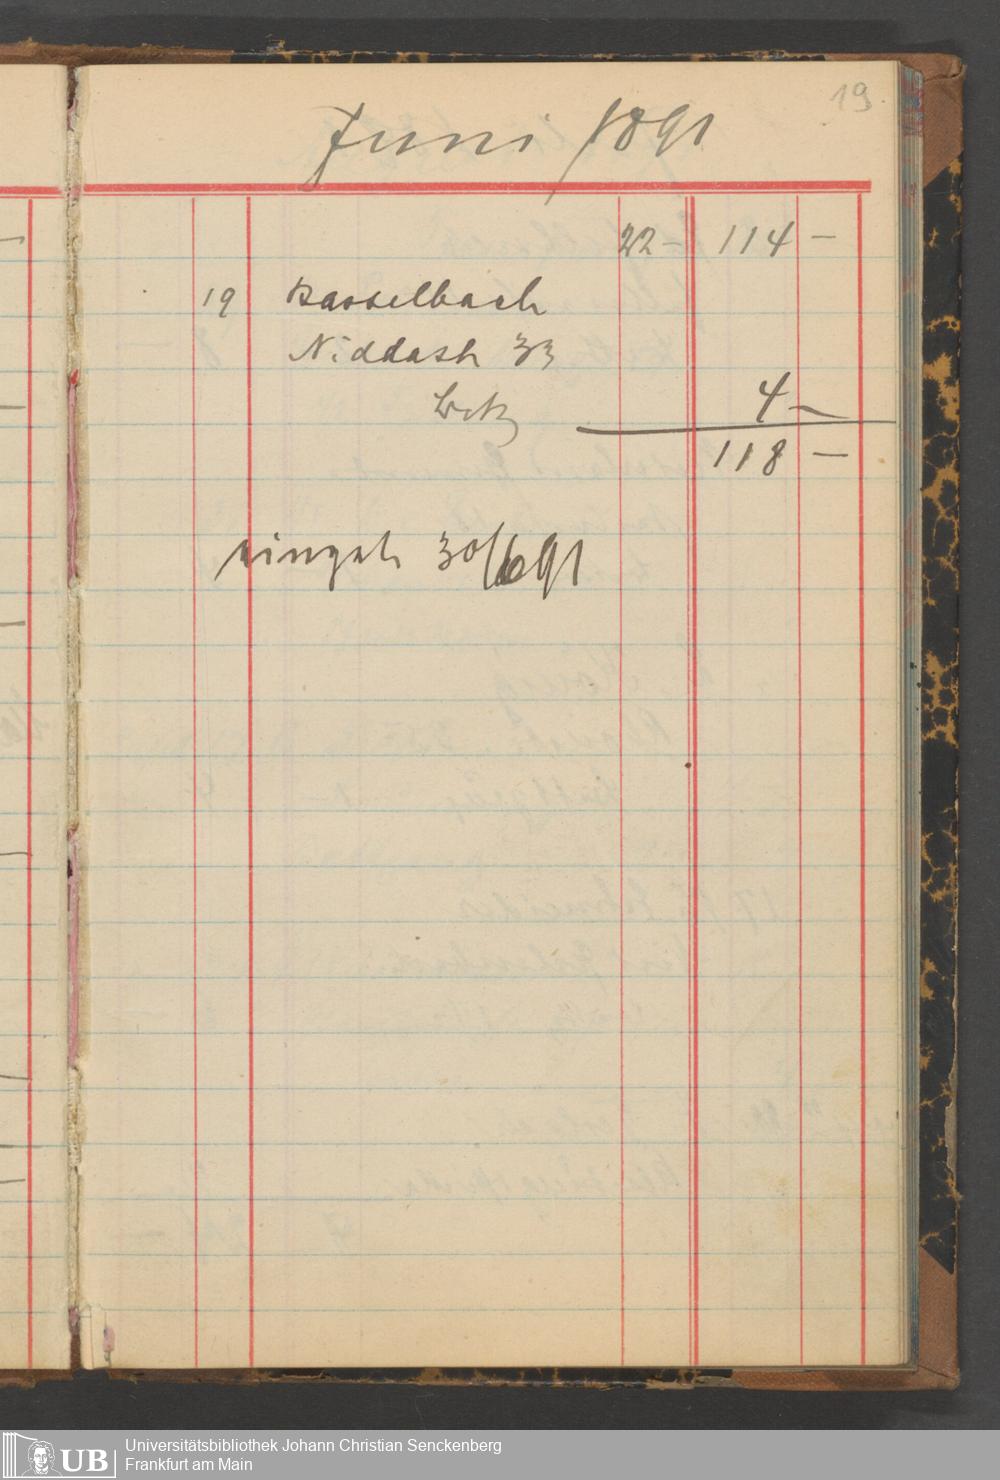 19.
Juni 1891
22 - 114 -
19 Basselbach
Niddastr 33
4 -
118 -
eingetr 30/6 91
UB
Universitätsbibliothek Johann Christian Senckenberg
Frankfurt am Main